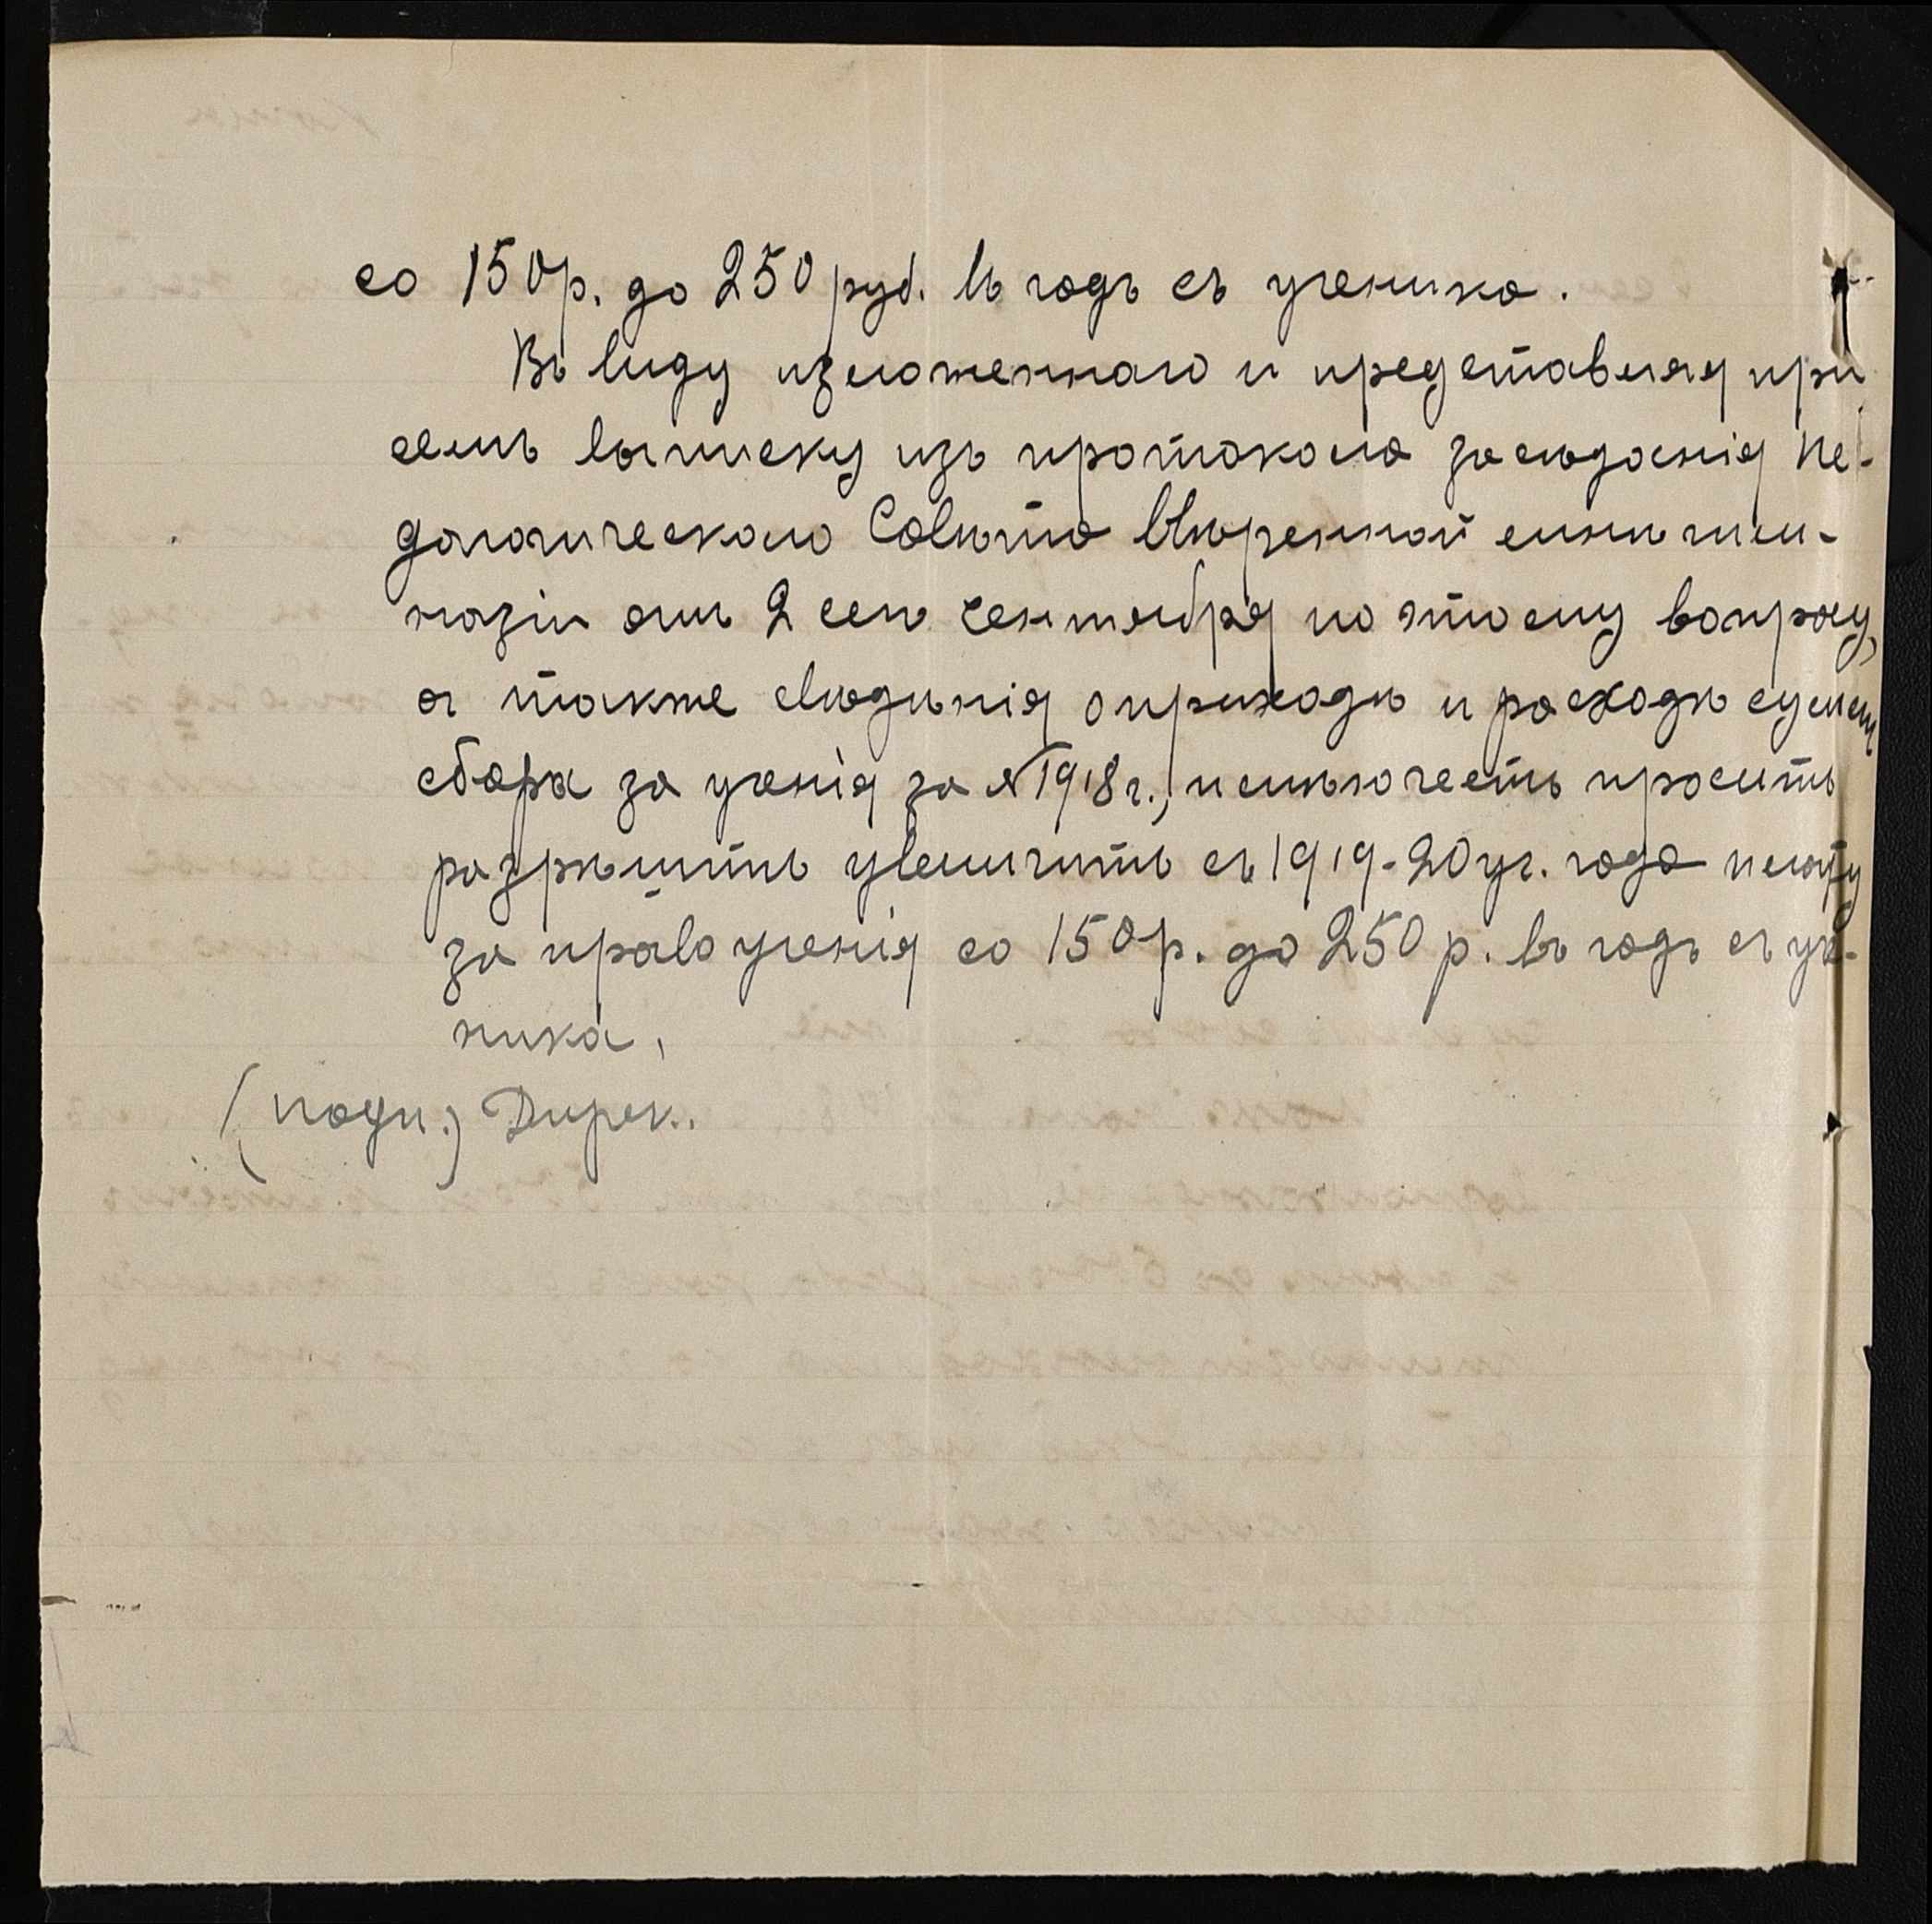 со 150 р. до 250 руб. въ годъ съ ученика.
Въ виду изложеннаго и представляя при
семъ выписку изъ протокола засѣданія Пе-
дагогическаго Совѣта ввѣренной мнѣ гим-
назіи отъ 2 сего сентября по этому вопросу,
а также свѣдѣнія о приходѣ и расходѣ суммъ
сбора за ученія за 1918 г., имѣю честь просить
разрѣшить увеличить съ 1919-20 уч. года плату
за право ученія со 150 р. до 250 р. въ годъ съ уче-
ника.
(подп.) Дирек.